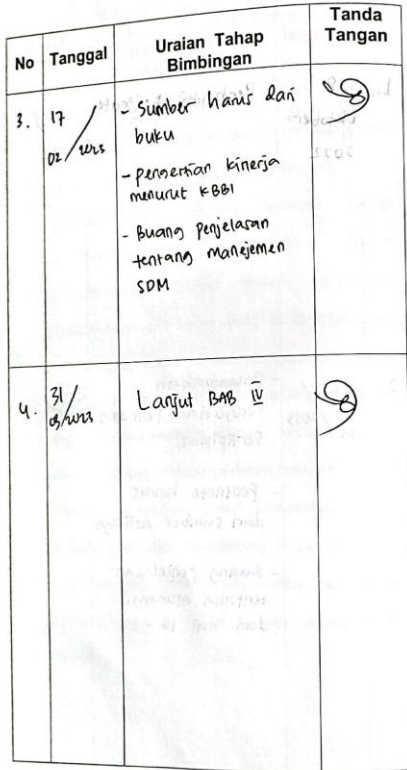 No Tanggal Uraian Tahap Bimbingan Tanda Tangan
3. 17/02/2023 - Sumber harus dari
buku
- pengertian kinerja
menurut KBBI
- Buang penjelasan
tentang manejemen
SDM
4. 31/03/2023 Lanjut BAB IV